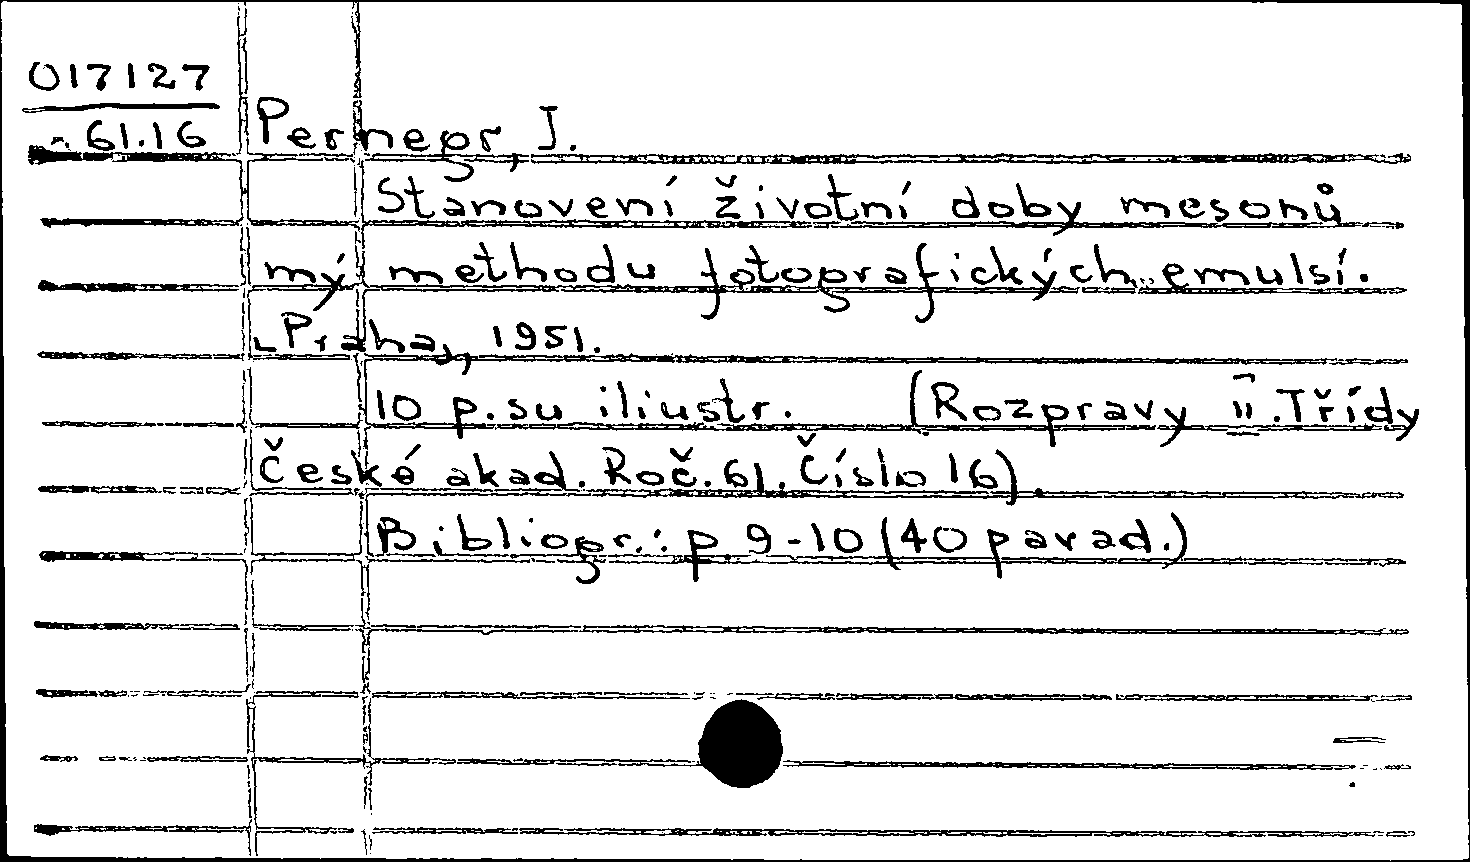 017127
61.16 Pernegr, J.
Stanovení životní doby mesonů
mý methodu fotografických emulsí.
Praha, 1951.
10 p. su iliustr. (Rozpravy II. Třídy
České akad. Roč. 61. Číslo 16).
Bibliogr.: p. 9-10 (40 pavad.)